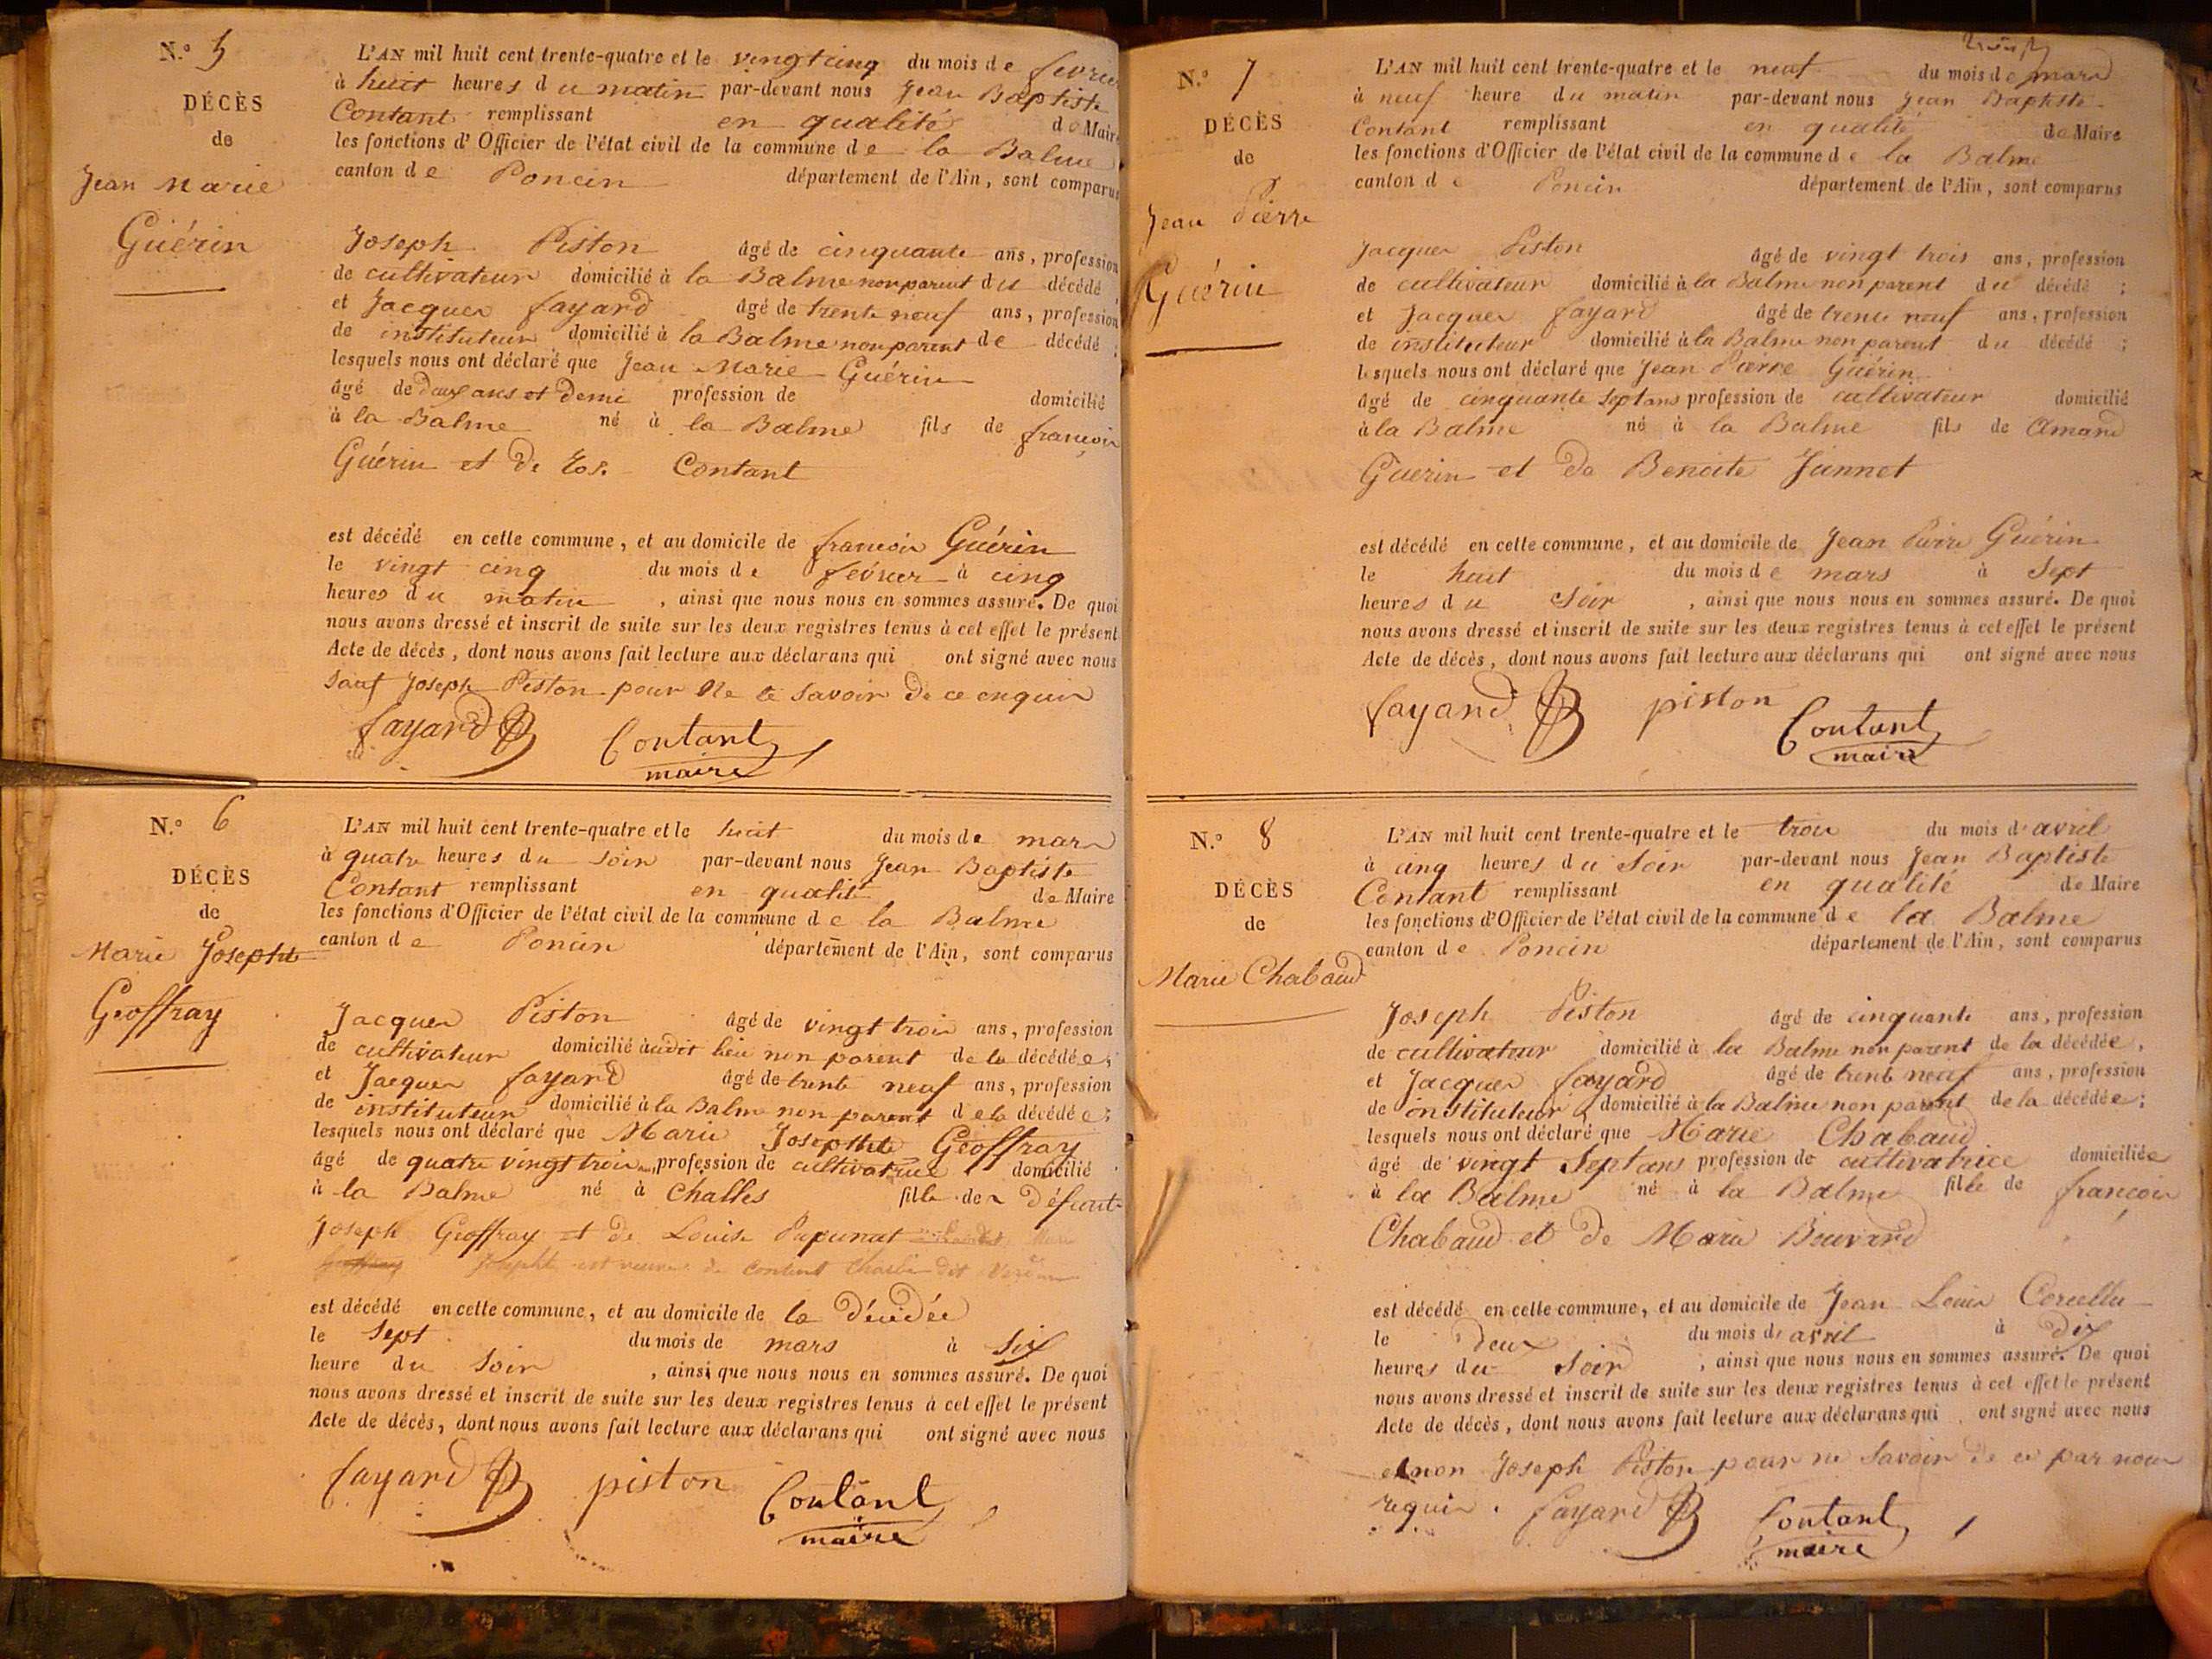 N.º 5
DÉCÈS
de
Jean Marie
Guérin
L'AN mil huit cent trente-quatre et le vingt cinq du mois de fevrier
à huit heures du matin par-devant nous Jean Baptiste
Contant remplissant en qualité de Maire
les fonctions d'Officier de l'état civil de la commune de la Balme
canton de Poncin département de l'Ain, sont comparus
Joseph Piston âgé de cinquante ans, profession
de cultivateur domicilié à la Balme non parent du décédé,
et Jacques fayard âgé de trente neuf ans, profession
de instituteur domicilié à la Balme non parent de décédé;
lesquels nous ont déclaré que Jean Marie Guérin
âgé de deux ans et demi profession de domicilié
à la Balme né à la Balme fils de francois
Guérin et de Jos. Contant
est décédé en cette commune, et au domicile de francois Guérin
le vingt cinq du mois de fevrier à cinq
heures du matin, ainsi que nous nous en sommes assuré. De quoi
nous avons dressé et inscrit de suite sur les deux registres tenus à cet effet le présent
Acte de décès, dont nous avons fait lecture aux déclarans qui ont signé avec nous
sauf Joseph Piston pour ne le savoir de ce enquis
fayard Contant
maire
N.º 6
DÉCÈS
de
Marie Josephte
Geoffray
L'AN mil huit cent trente-quatre et le huit du mois de mars
à quatre heures du soir par-devant nous Jean Baptiste
Contant remplissant en qualité de Maire
les fonctions d'Officier de l'état civil de la commune de la Balme
canton de Poncin département de l'Ain, sont comparus
Jacques Piston âgé de vingt trois ans, profession
de cultivateur domicilié audit lieu non parent de la décédée;
et Jacques fayard âgé de trente neuf ans, profession
de instituteur domicilié à la Balme non parent de la décédée;
lesquels nous ont déclaré que Marie Josephte Geoffray
âgé de quatre vingt trois ans, profession de cultivatrice domicilié
à la Balme né à Challes fille des défunts
Joseph Geoffray et de Louise Papunat
Josephte est veuve de Contant Charles dit
est décédé en cette commune, et au domicile de la décédée
le sept du mois de mars à six
heure du soir, ainsi que nous nous en sommes assuré. De quoi
nous avons dressé et inscrit de suite sur les deux registres tenus à cet effet le présent
Acte de décès, dont nous avons fait lecture aux déclarans qui ont signé avec nous
fayard piston Contant
maire
N.º 7
DÉCÈS
de
Jean Pierre
Guérin
L'AN mil huit cent trente-quatre et le neuf du mois de mars
à neuf heure du matin par-devant nous Jean Baptiste
Contant remplissant en qualité de Maire
les fonctions d'Officier de l'état civil de la commune de la Balme
canton de Poncin département de l'Ain, sont comparus
Jacques Piston âgé de vingt trois ans, profession
de cultivateur domicilié à la Balme non parent du décédé;
et Jacques fayard âgé de trente neuf ans, profession
de instituteur domicilié à la Balme non parent du décédé;
lesquels nous ont déclaré que Jean Pierre Guérin
âgé de cinquante sept ans profession de cultivateur domicilié
à la Balme né à la Balme fils de Amand
Guerin et de Benoite Jannet
est décédé en cette commune, et au domicile de Jean Pierre Guérin
le huit du mois de mars à sept
heures du soir, ainsi que nous nous en sommes assuré. De quoi
nous avons dressé et inscrit de suite sur les deux registres tenus à cet effet le présent
Acte de décès, dont nous avons fait lecture aux déclarans qui ont signé avec nous
fayard piston Contant
maire
N.º 8
DÉCÈS
de
Marie Chabaud
L'AN mil huit cent trente-quatre et le trois du mois d'avril
à cinq heures du soir par-devant nous Jean Baptiste
Contant remplissant en qualité de Maire
les fonctions d'Officier de l'état civil de la commune de la Balme
canton de Poncin département de l'Ain, sont comparus
Joseph Piston âgé de cinquante ans, profession
de cultivateur domicilié à la Balme non parent de la décédée,
et Jacques fayard âgé de trente neuf ans, profession
de instituteur domicilié à la Balme non parent de la décédée;
lesquels nous ont déclaré que Marie Chabaud
âgé de vingt sept ans profession de cultivatrice domiciliée
à la Balme né à la Balme fille de françois
Chabaud et de Marie Bouvard
est décédé en cette commune, et au domicile de Jean Louis
le deux du mois d'avril à dix
heures du soir, ainsi que nous nous en sommes assuré. De quoi
nous avons dressé et inscrit de suite sur les deux registres tenus à cet effet le présent
Acte de décès, dont nous avons fait lecture aux déclarans qui ont signé avec nous
et non Joseph Piston pour ne savoir de ce par nous
requis. fayard Contant
maire